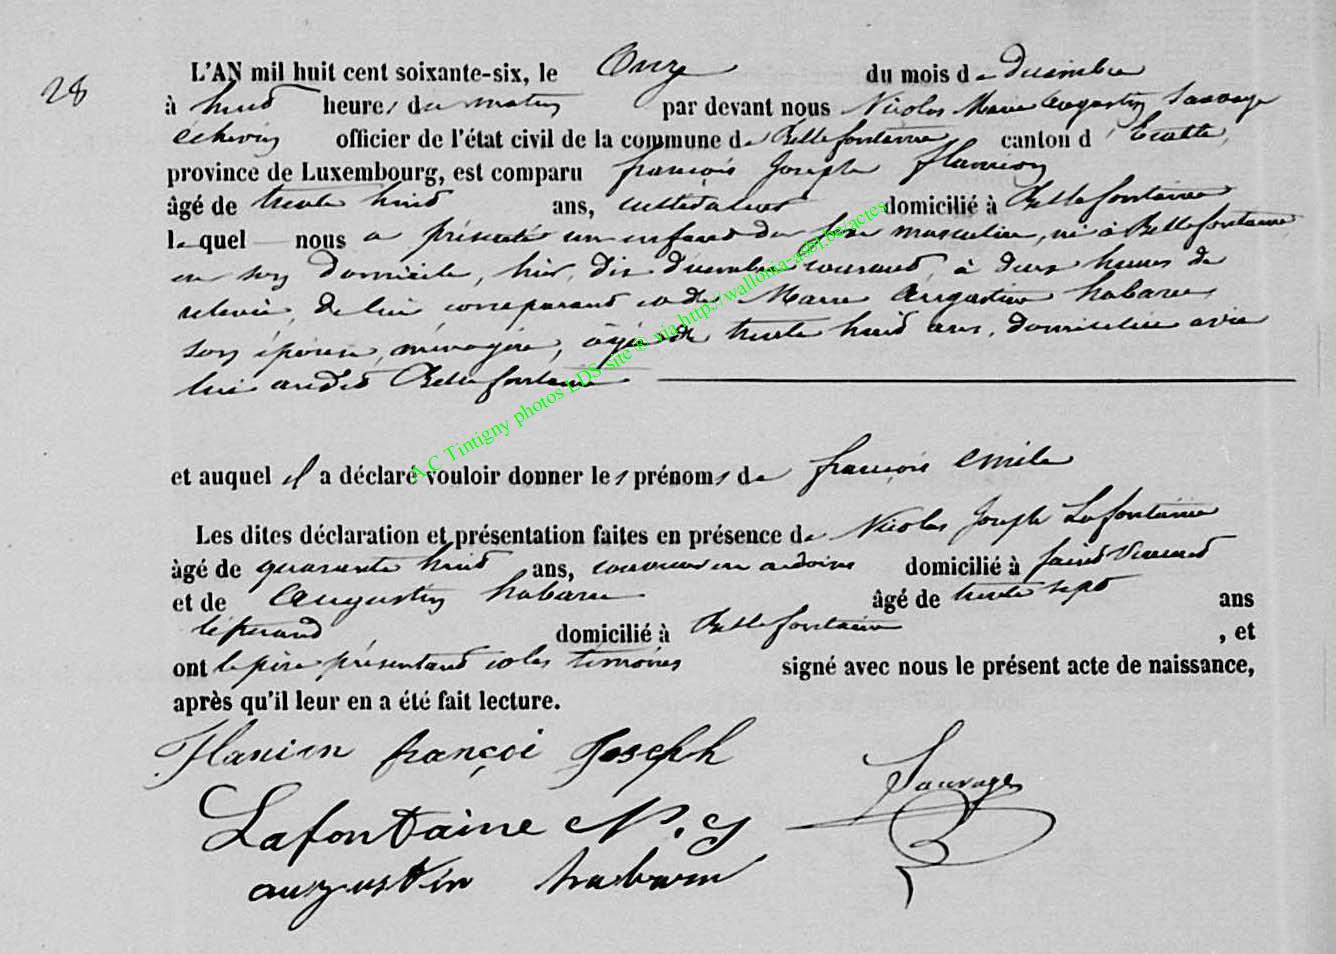 28
L'AN mil huit cent soixante-six, le Onze du mois de décembre
à huit heures du matin par devant nous Nicolas Marie Augustin Sauvage
échevin officier de l'état civil de la commune de Bellefontaine canton d'Etalle,
province de Luxembourg, est comparu françois Joseph flamion
âgé de trente huit ans, cultivateur domicilié à Bellefontaine
lequel nous a présenté un enfant du sexe masculin, né à Bellefontaine
en son domicile, hier, dix décembre courant, à deux heures de
relevée, de lui comparant et de Marie Augustine habaru,
son épouse, ménagère, âgée de trente huit ans, domiciliée avec
lui audit Bellefontaine
et auquel il a déclaré vouloir donner les prénoms de françois émile
Les dites déclaration et présentation faites en présence de Nicolas Joseph Lafontaine
àgé de quarante huit ans, couvreur en ardoises domicilié à saint Vincent
et de Augustin habaru âgé de trente sept ans
domicilié à Bellefontaine , et
ont le père présentant et les témoins signé avec nous le présent acte de naissance,
après qu'il leur en a été fait lecture.
flamion françoi Joseph
Sauvage
Lafontaine N. J
augustin habaru
A.C Tintigny photos LDS site ® via http://wallonia-asbl.be/actes